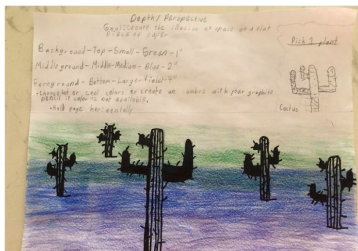 Depth/Perspective
Goal: create the illusion of space on a flat
piece of paper
Pick 1 plant
Background-Top-Small-Green-1"
Middleground-Middle-Medium-Blue-2"
Foreground-Bottom-Large-Violet-4"
cool colors or create an with your graphite
pencil if color is not available
Hold page horizontally
Cactus